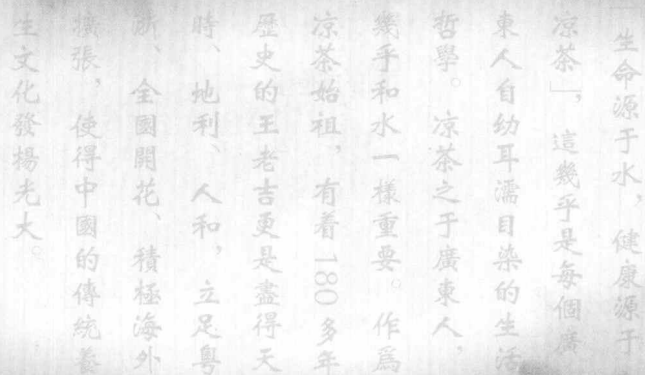 「生命源于水，健康源于
凉茶」，這幾乎是每個廣
東人自幼耳濡目染的生活
哲學。凉茶之于廣東人，
幾乎和水一樣重要。作爲
凉茶始祖，有着180多年
歷史的王老吉更是盡得天
時、地利、人和，立足粵
浙、全國開花、積極海外
擴張，使得中國的傳統養
生文化發揚光大。